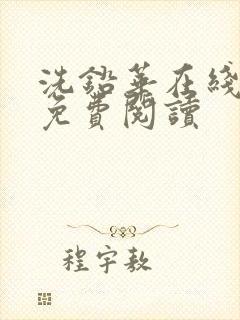 洗鉛華在綫
免費閱讀
程宇敖